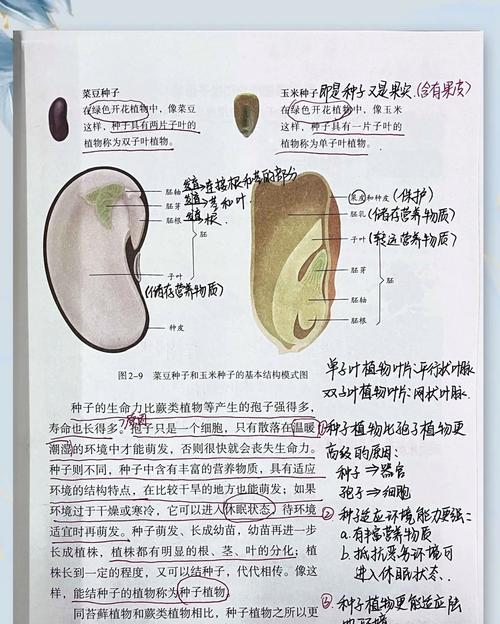 菜豆种子
在绿色开花植物中，像菜豆
这样，种子具有两片子叶的
植物称为双子叶植物。
玉米种子 即是种子又是果实.(含有果皮)
在绿色开花植物中，像玉米
这样，种子具有一片子叶的
植物称为单子叶植物。
胚轴 发育 连接根和茎的部分
胚芽 发育 茎和叶
胚根 发育 根.
胚
子叶
(储存营养物质)
种皮
果皮和种皮 (保护)
胚乳 (储存营养物质)
子叶 (转运营养物质)
胚芽
胚轴
胚根
胚
图2-9 菜豆种子和玉米种子的基本结构模式图
单子叶植物叶片:平行状叶脉
双子叶植物叶片:网状叶脉.
种子的生命力比蕨类植物等产生的孢子强得多，
寿命也长得多。原因 孢子只是一个细胞，只有散落在温暖
潮湿的环境中才能萌发，否则很快就会丧失生命力。
种子则不同，种子中含有丰富的营养物质，具有适应
环境的结构特点，在比较干旱的地方也能萌发；如果
环境过于干燥或寒冷，它可以进入休眠状态，待环境
适宜时再萌发。种子萌发、长成幼苗，幼苗再进一步
长成植株，植株都有明显的根、茎、叶的分化；植
株长到一定的程度，又可以结种子，代代相传。像这
样，能结种子的植物称为种子植物。
同苔藓植物和蕨类植物相比，种子植物之所以更
①种子植物比孢子植物更
高级的原因:
种子⇒器官
孢子⇒细胞
②种子适应环境能力更强:
a.有丰富营养物质
b.抵抗恶劣环境可
进入休眠状态.
③.种子植物更能适应陆
地环境